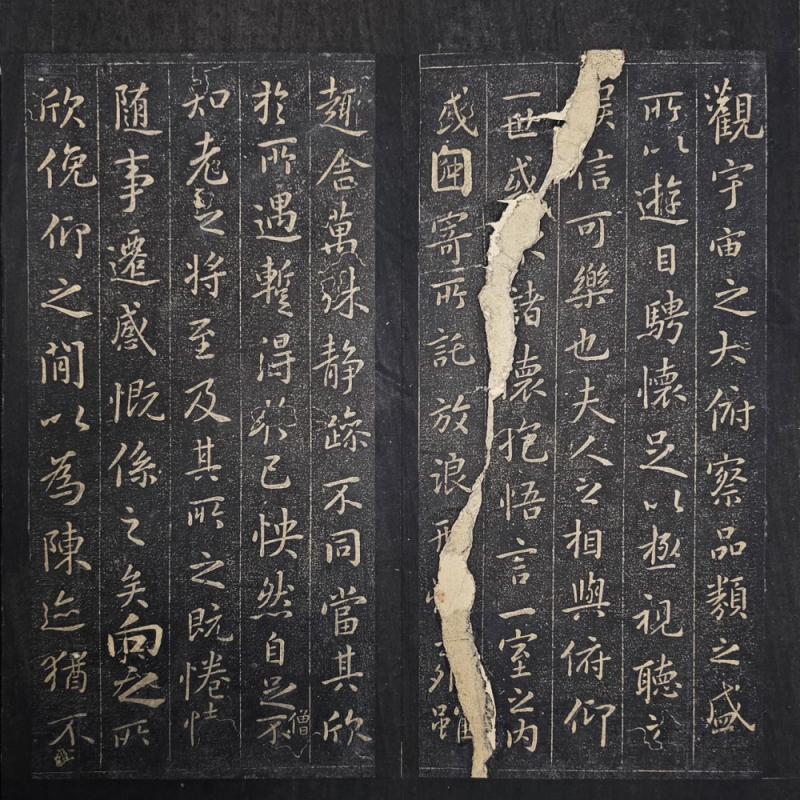 觀宇宙之大俯察品類之盛
所以遊目騁懷足以極視聽之
信可樂也夫人之相與俯仰
一世或諸懷抱悟言一室之內
或因寄所託放浪雖
趣舍萬殊静躁不同當其欣
於所遇蹔得於己怏然自足不
僧
知老之將至及其所之既惓情
随事遷感慨係之矣向之所
欣俛仰之間以為陳迹猶不